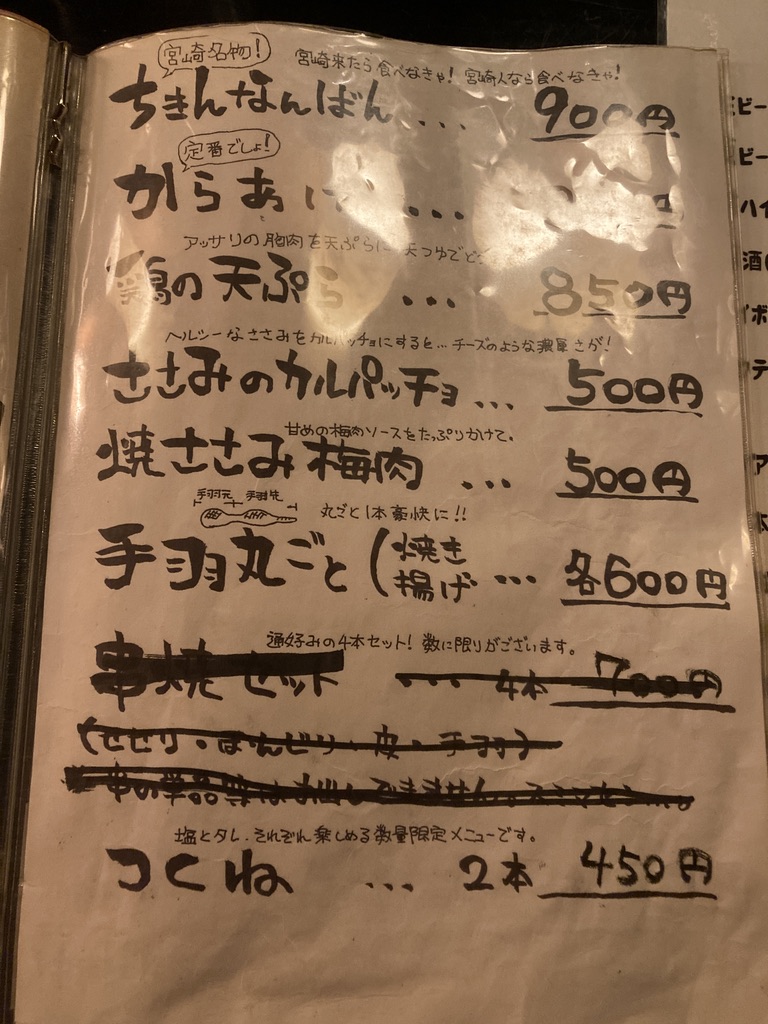 宮崎名物!
宮崎来たら食べなきゃ! 宮崎人なら食べなきゃ!
ちきんなんばん ... 900円
定番でしょ!
からあげ ... 円
アッサリの胸肉を天ぷらに 天つゆでど
鶏の天ぷら ... 850円
ヘルシーなささみをカルパッチョにすると…チーズのような濃厚さが!
ささみのカルパッチョ ... 500円
甘めの梅肉ソースをたっぷりかけて。
焼ささみ梅肉 ... 500円
手羽元 手羽先
丸ごと1本豪快に!!
手羽丸ごと(焼き 揚げ ... 各600円
通好みの4本セット! 数に限りがございます。
串焼セット ... 4本 700円
(せせり・ぼんじり・皮・手羽)
塩とタレ、それぞれ楽しめる数量限定メニューです。
つくね ... 2本 450円
ビー
ビー
ハイ
酒